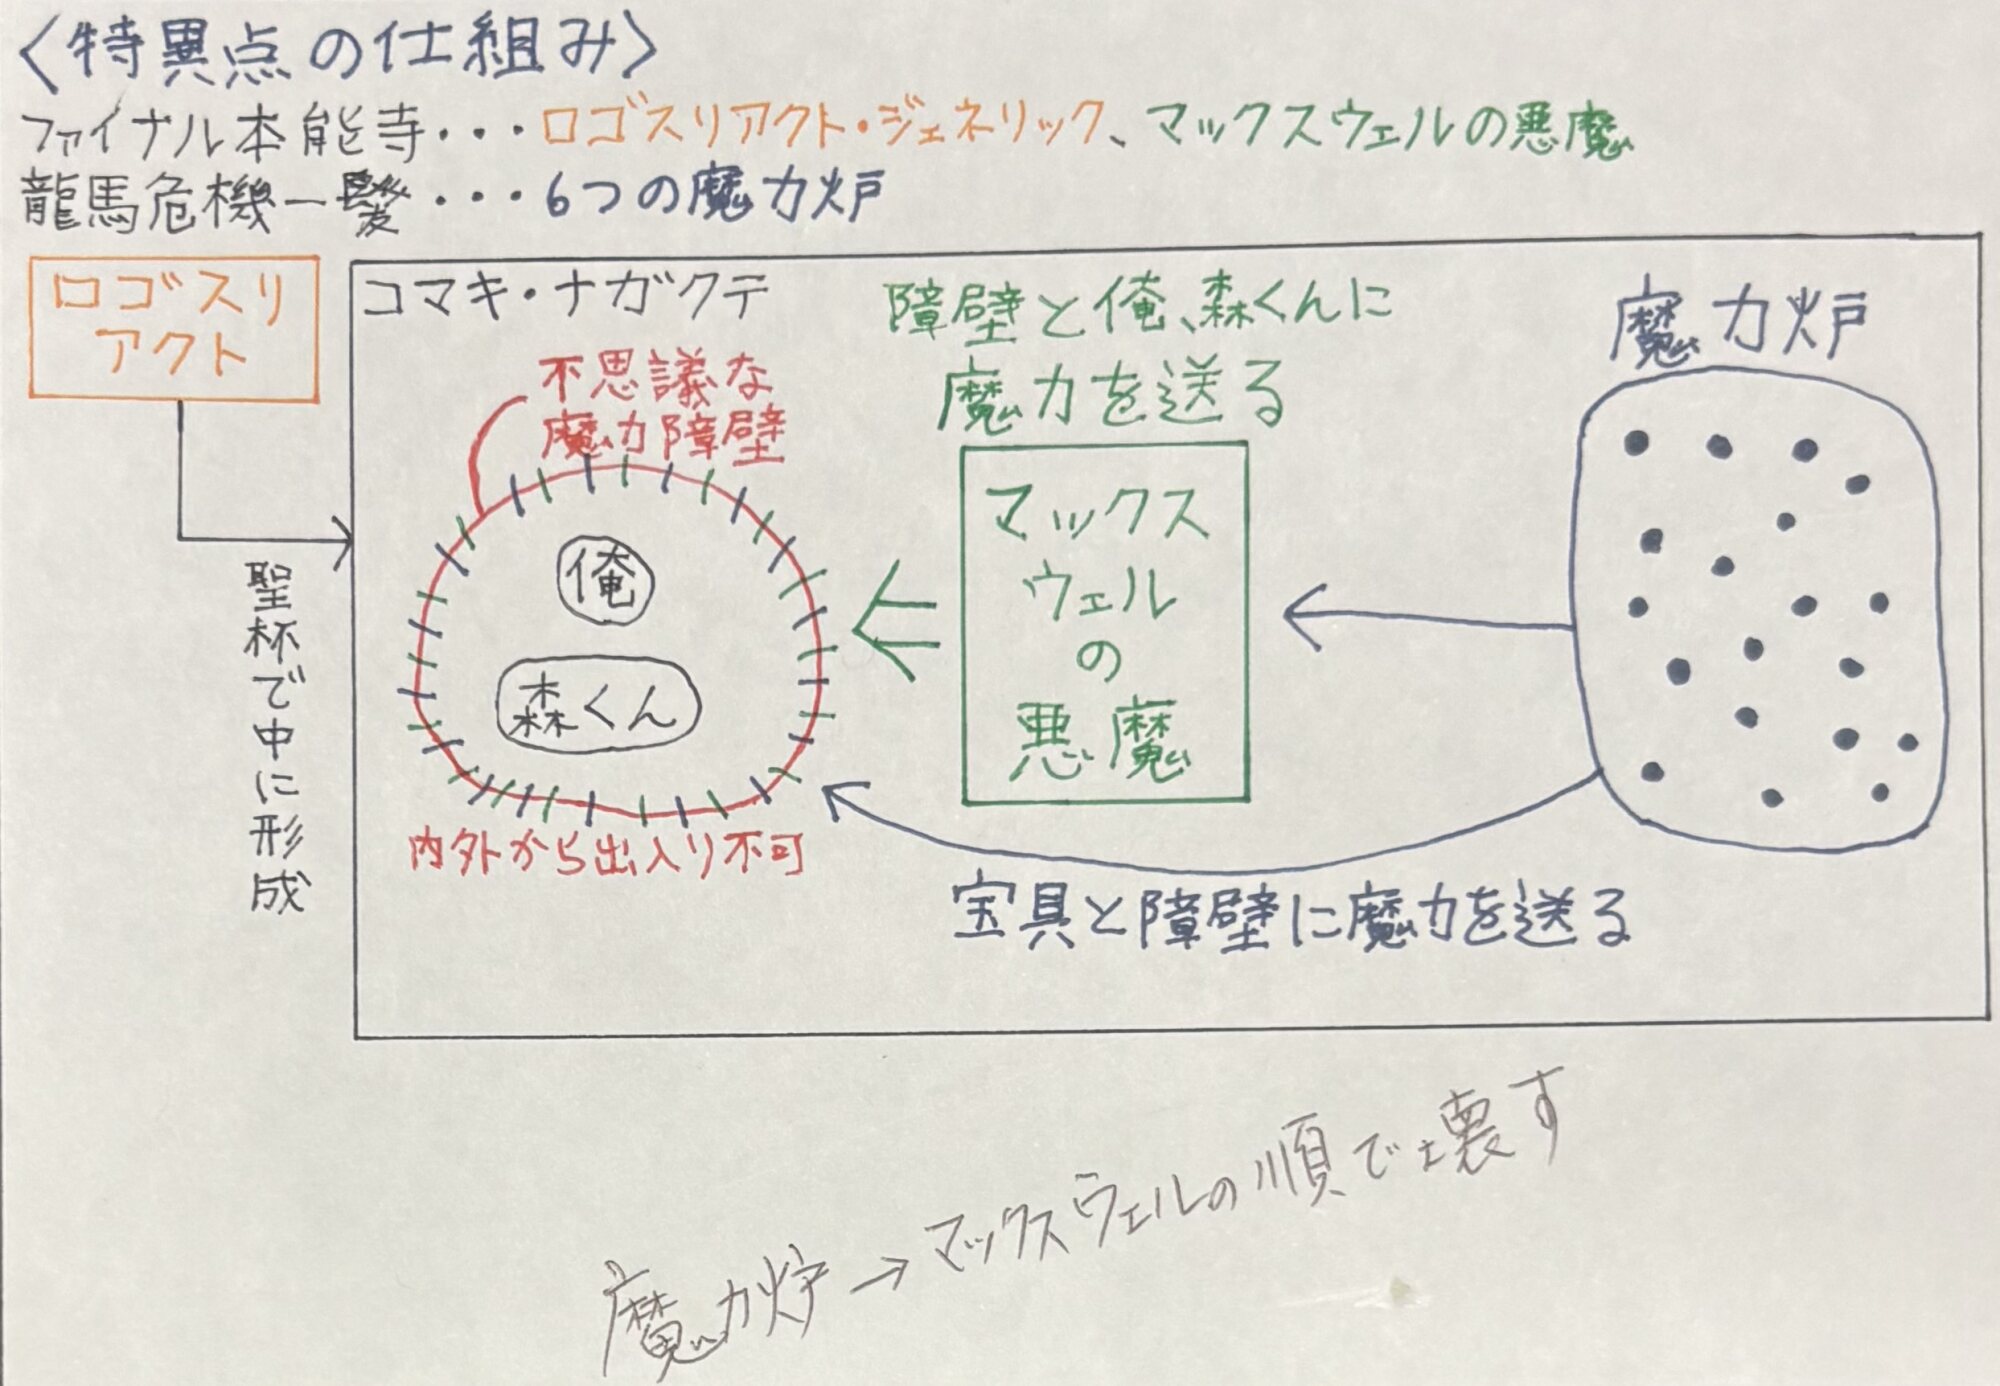 〈特異点の仕組み〉
ファイナル本能寺・・・ロゴスリアクト・ジェネリック、マックスウェルの悪魔
龍馬危機一髪・・・6つの魔力炉
ロゴスリ
アクト
聖杯で中に形成
コマキ・ナガクテ
不思議な
魔力障壁
俺
森くん
内外から出入り不可
障壁と俺、森くんに
魔力を送る
マックス
ウェル
の
悪魔
魔力炉
宝具と障壁に魔力を送る
魔力炉→マックスウェルの順で壊す